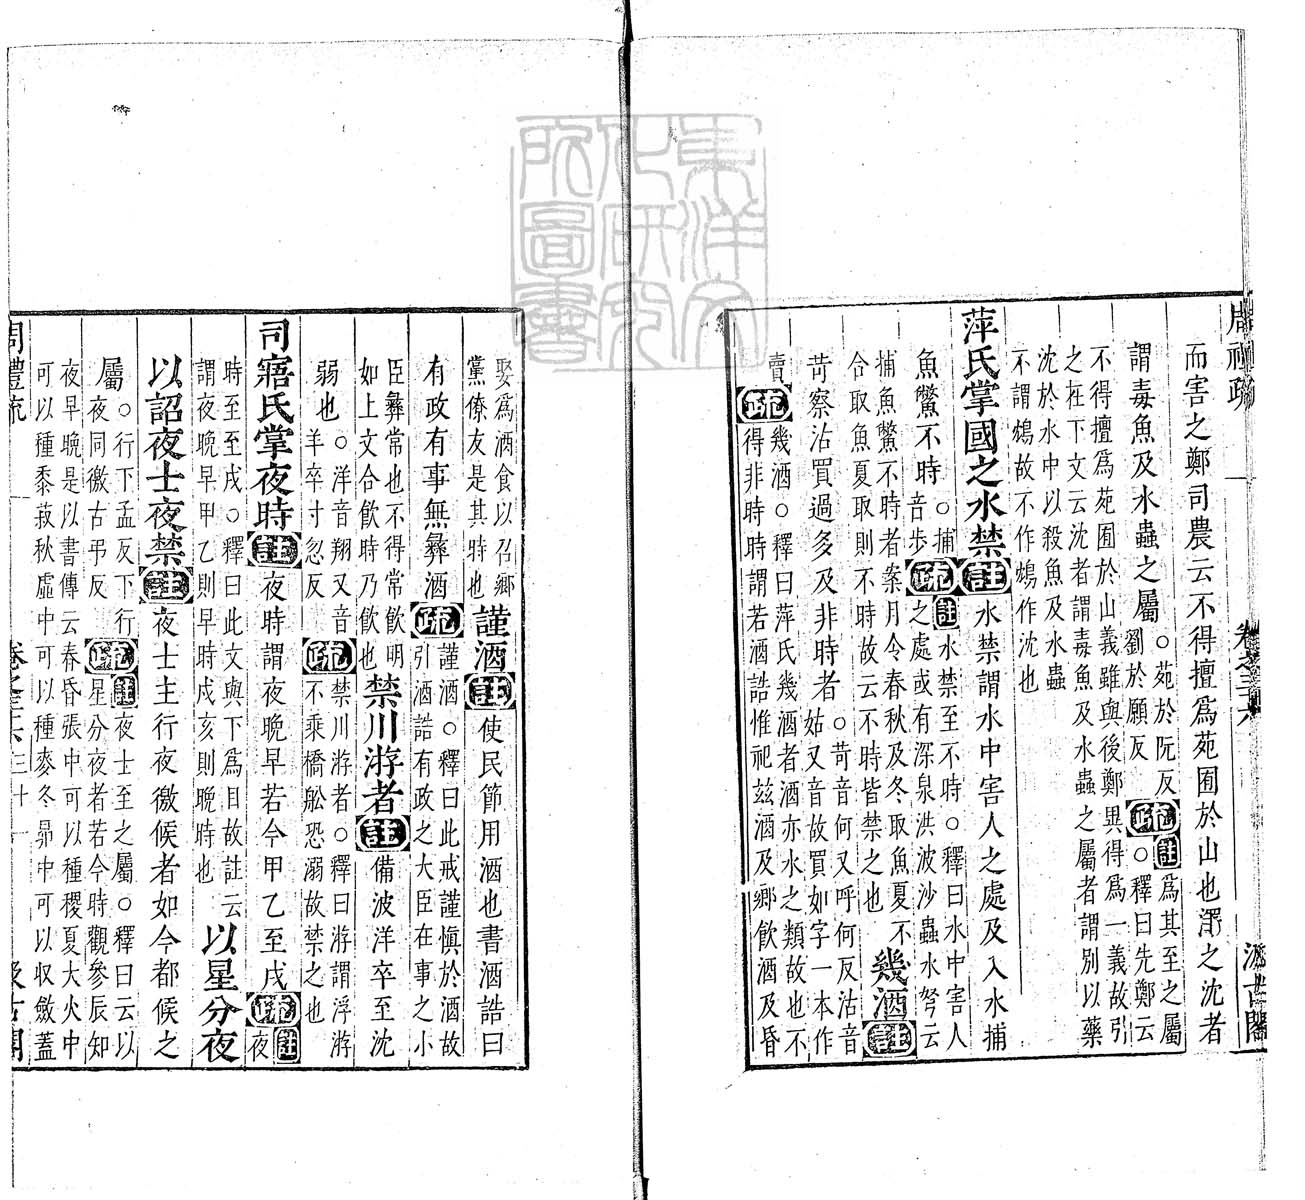 周禮疏 卷之三十六 汲古閣
而害之鄭司農云不得擅爲苑囿於山也澤之沈者
謂毒魚及水蟲之屬
○苑於阮反
劉於願反
疏
註爲其至之屬
○釋曰先鄭云
不得擅爲苑囿於山義雖與後鄭異得爲一義故引
之在下文云沈者謂毒魚及水蟲之屬者謂別以藥
沈於水中以殺魚及水蟲
不謂鴆故不作鴆作沈也
萍氏掌國之水禁註水禁謂水中害人之處及入水捕
魚鱉不時
○捕
音步
疏
註水禁至不時○釋曰水中害人
之處或有深泉洪波沙蟲水弩云
捕魚鱉不時者案月令春秋及冬取魚夏不
合取魚夏取則不時故云不時皆禁之也
幾酒註
苛察沽買過多及非時者
○苛音何又呼何反沽音
姑又音故買如字一本作
賣
疏
幾酒○釋曰萍氏幾酒者酒亦水之類故也不
得非時時謂若酒誥惟祀兹酒及鄉飲酒及昏
娶爲酒食以召鄉
黨僚友是其時也
謹酒註使民節用酒也書酒誥曰
有政有事無彝酒
疏
謹酒○釋曰此戒謹愼於酒故
引酒誥有政之大臣在事之小
臣彝常也不得常飲
如上文合飲時乃飲也
禁川游者註備波洋卒至沈
弱也
○洋音翔又音
羊卒寸忽反
疏
禁川游者○釋曰游謂浮游
不乘橋舩恐溺故禁之也
司寤氏掌夜時註夜時謂夜晚早若今甲乙至戌
疏
註夜
時至至戌○釋曰此文與下爲目故註云
謂夜晚早甲乙則早時戌亥則晚時也
以星分夜
以詔夜士夜禁註夜士主行夜徼候者如今都候之
屬
○行下孟反下行
夜同徼古弔反
疏
註夜士至之屬○釋曰云以
星分夜者若今時觀參辰知
夜早晚是以書傳云春昏張中可以種稷夏大火中
可以種黍菽秋虛中可以種麥冬昴中可以收斂蓋
周禮疏 卷之三十六 三十一 汲古閣
東洋文化研究所圖書